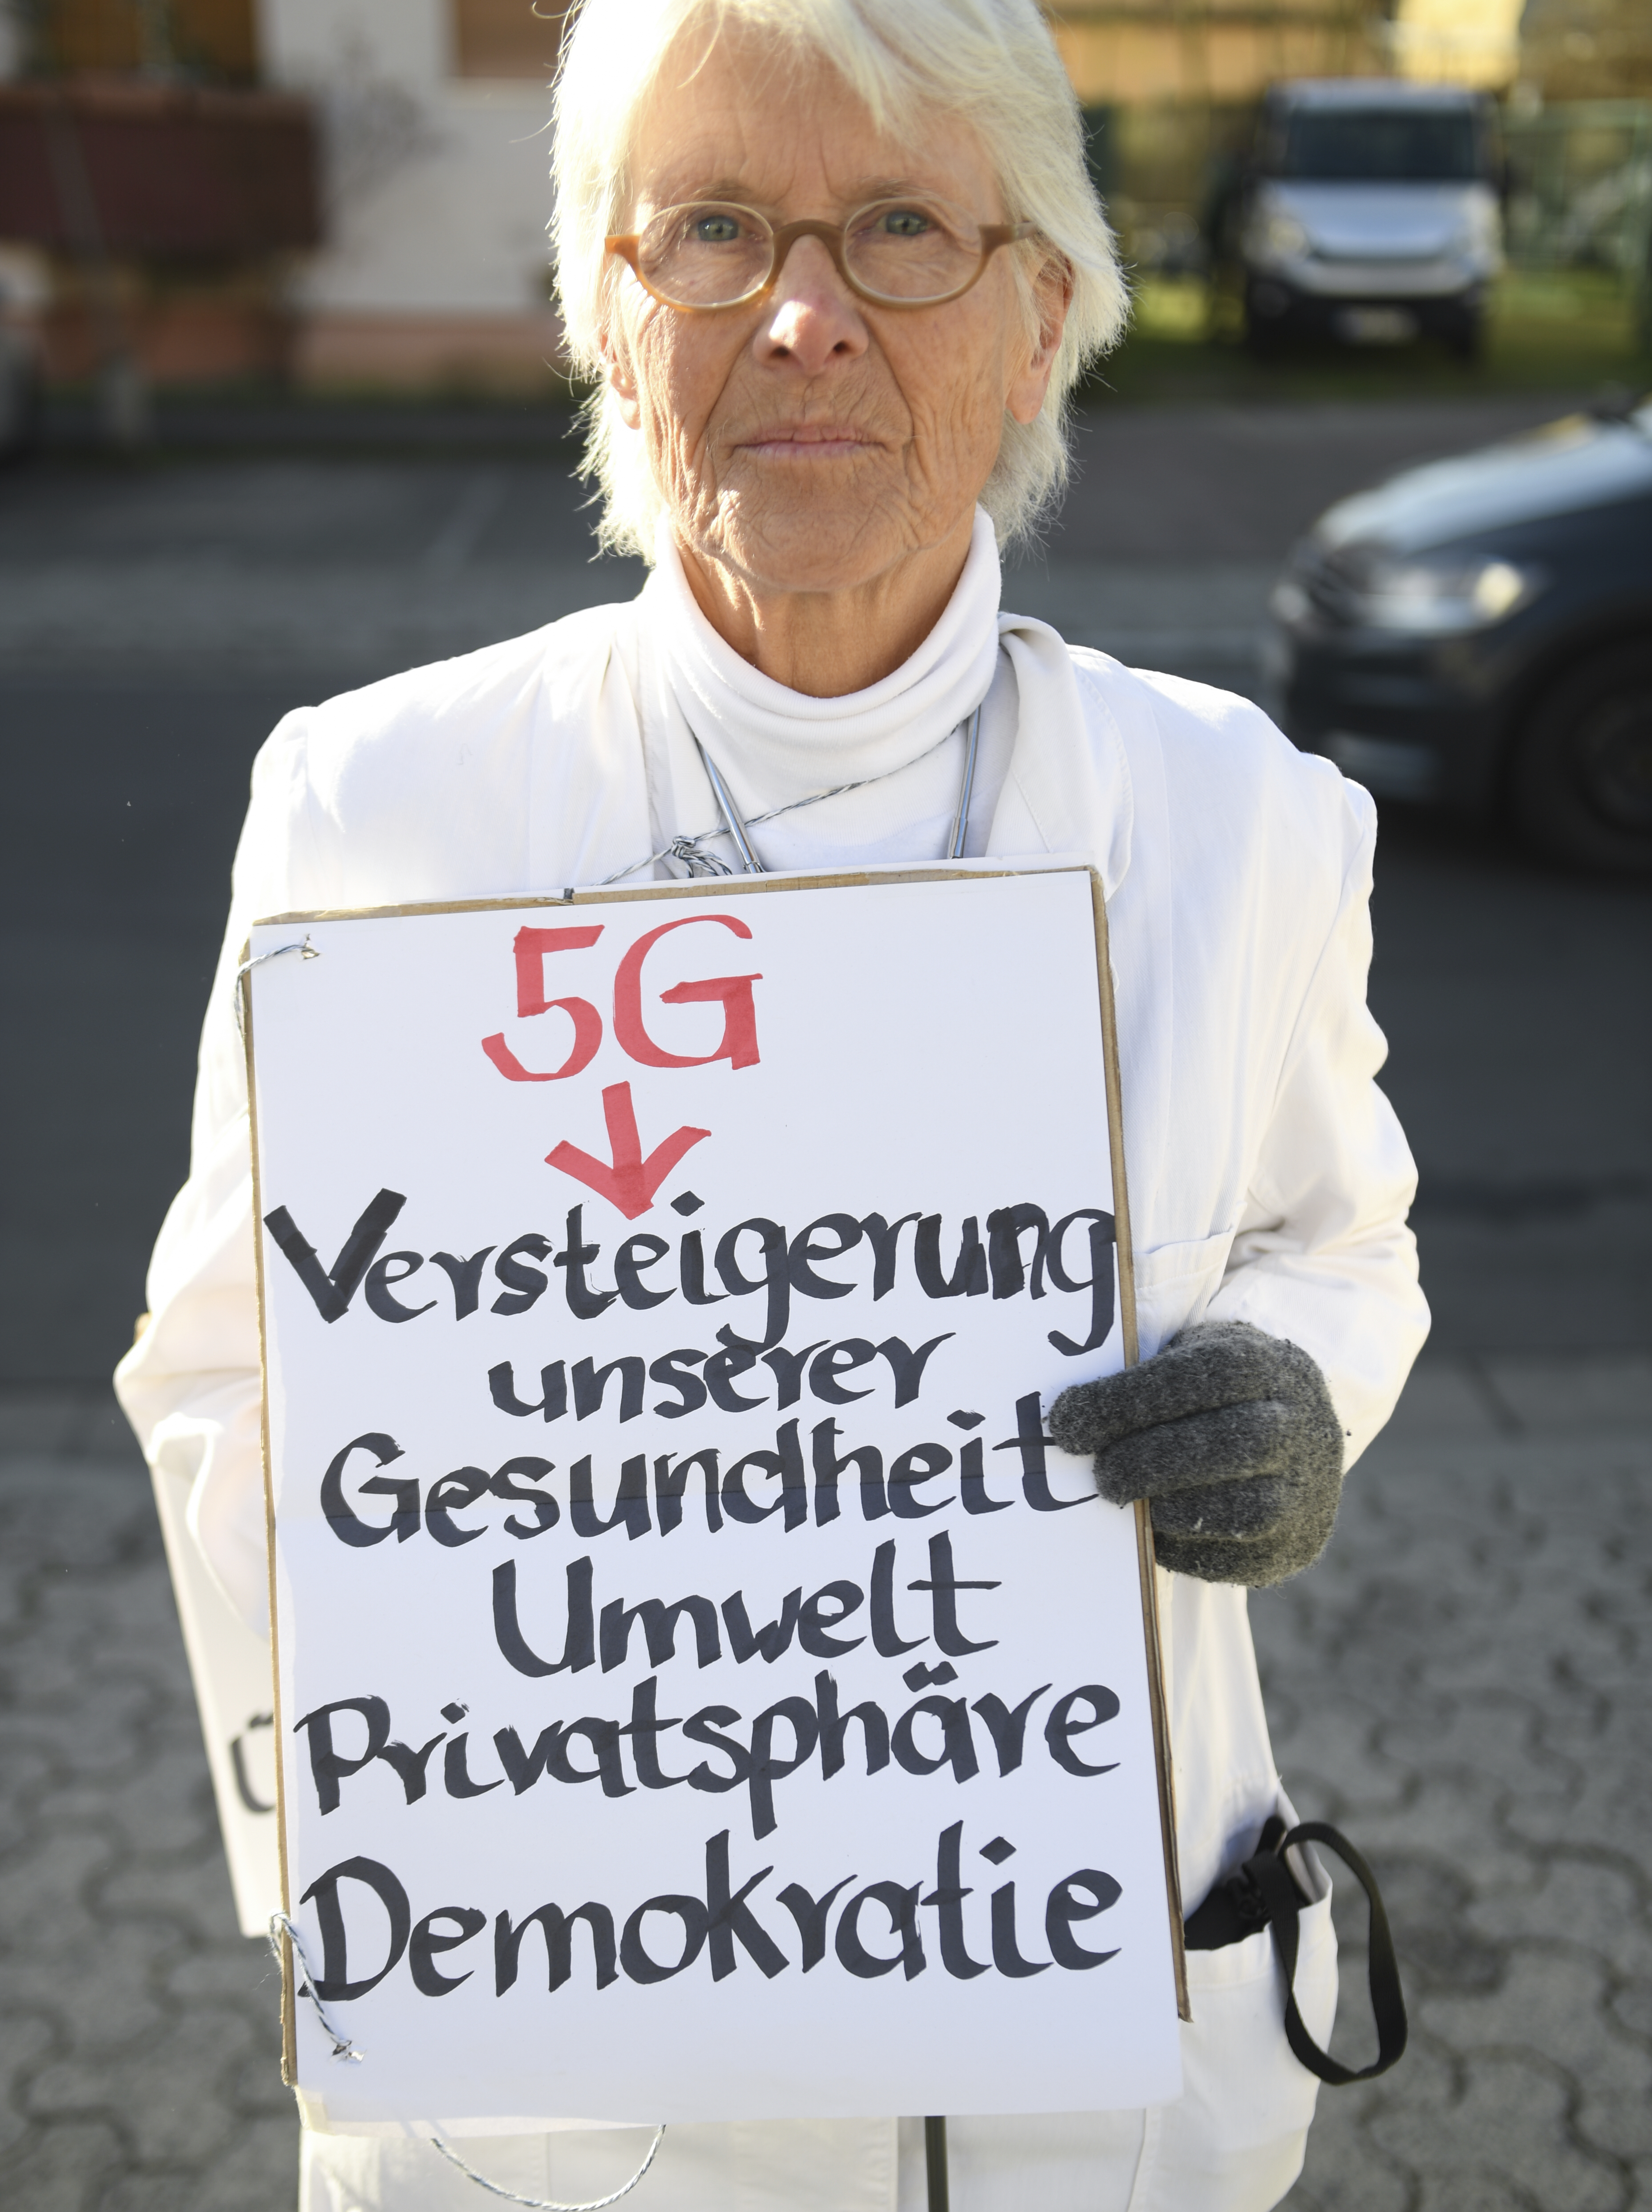 5G
Versteigerung
unserer
Gesundheit
Umwelt
Privatsphäre
Demokratie